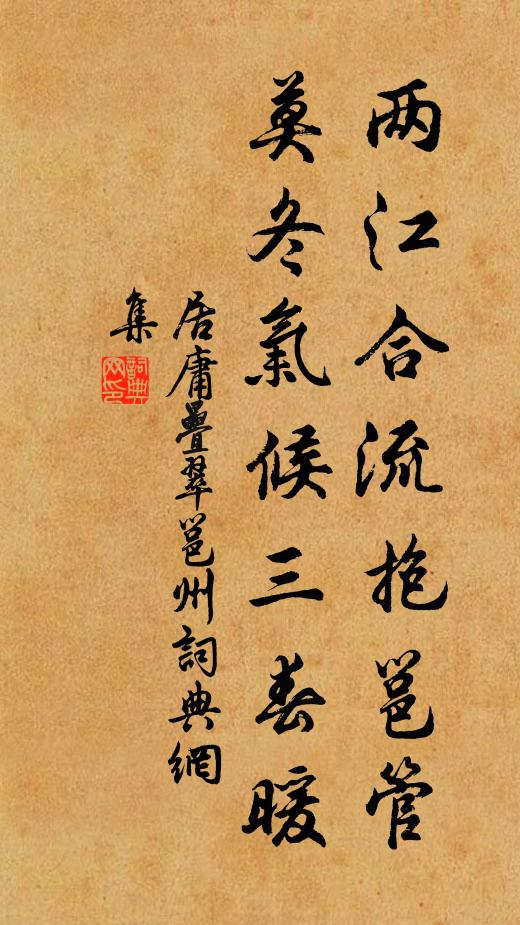 两江合流抱邕管
莫冬氣候三春暖
居庸疊翠邕州詞典網
集
詞典
网印